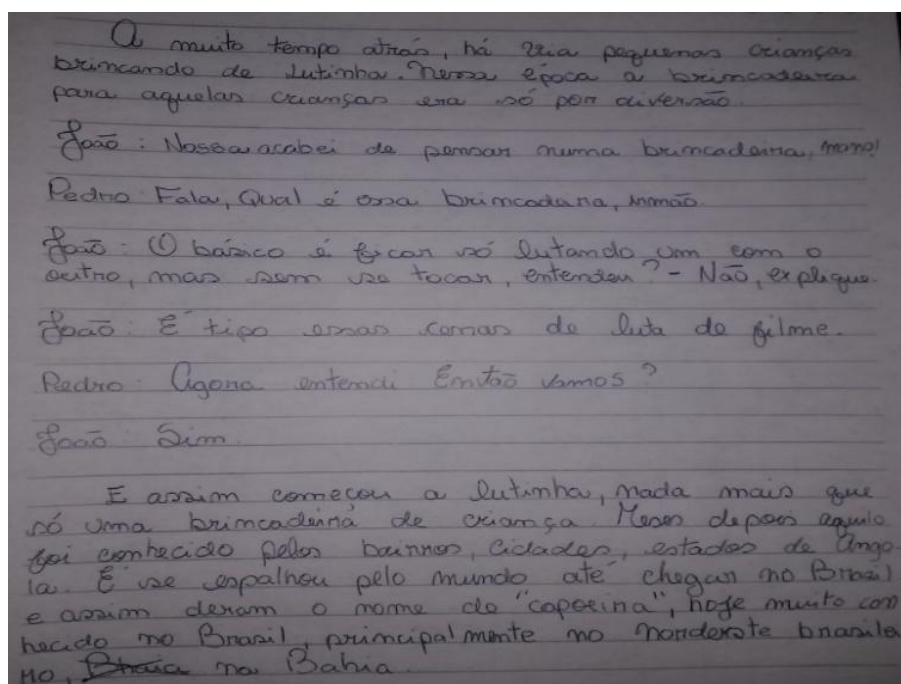 A muito tempo atrás, há pequenas crianças
brincando de lutinha. Nessa época a brincadeira
para aquelas crianças era só por diversão.
João: Nossa acabei de pensar numa brincadeira, mano!
Pedro: Fala, Qual é essa brincadeira, irmão.
João: O básico é ficar só lutando um com o
outro, mas sem se tocar, entendeu? - Não, explique.
João: É tipo essas cenas de luta de filme.
Pedro: Agora entendi Então vamos?
João: Sim
E assim começou a lutinha, nada mais que
só uma brincadeira de criança. Meses depois aquilo
foi conhecido pelos bairros, cidades, estados de Ango
la. E se espalhou pelo mundo até chegar no Brasil
e assim deram o nome de "capoeira", hoje muito con
hecido no Brasil, principalmente no nordeste brasilei
no, na Bahia.